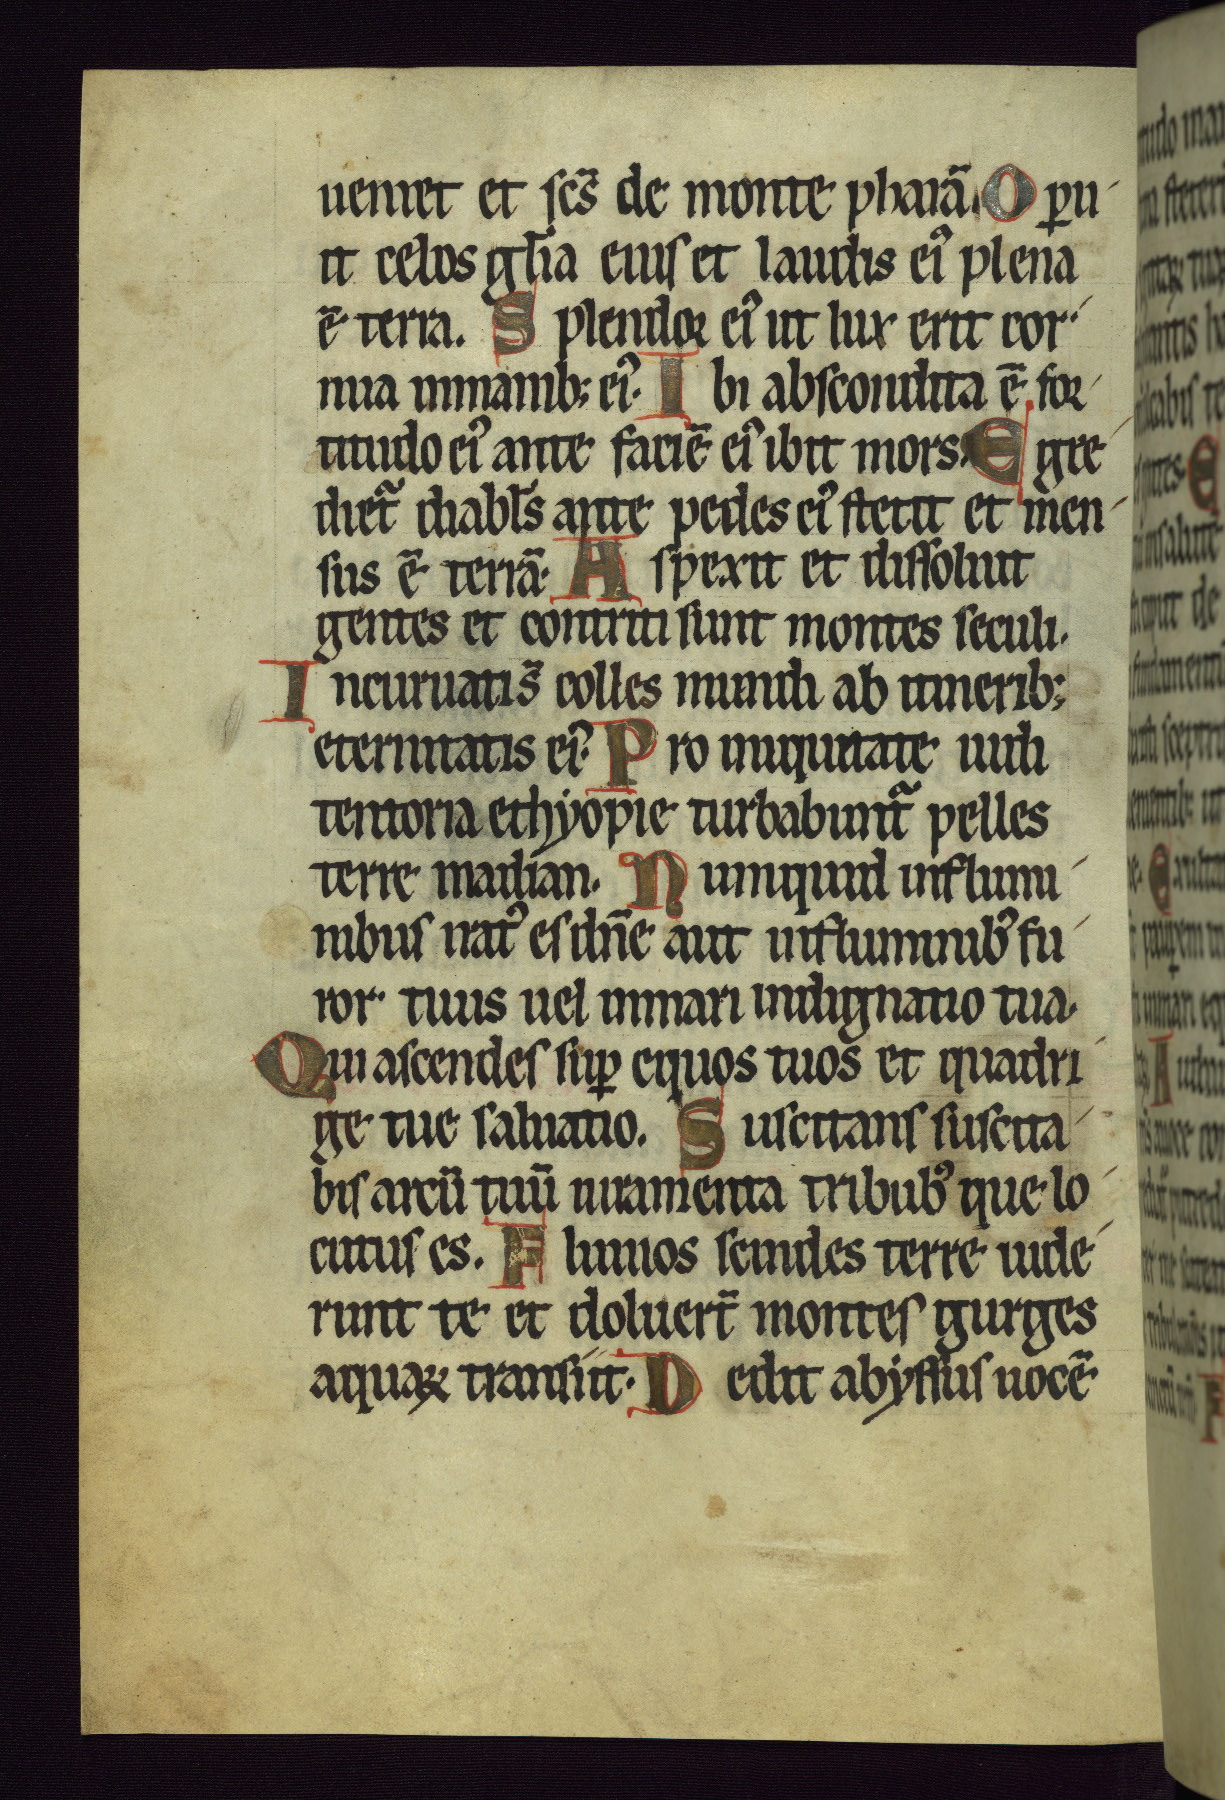 ueniet et sc̄s de monte pharā. O peru
it celos gl̄ia eius et laudis ei᾽ plena
ē terra. Splendor ei᾽ ut lux erit cor
nua inmanib; ei᾽. Ibi abscondita ē for
titudo ei᾽ ante faciē ei᾽ ibit mors. Egre
diet᷑ diabl̄s ante pedes ei᾽ stetit et men
sus ē terrā. Aspexit et dissoluit
gentes et contriti sunt montes seculi.
Incuruatis̄ colles mundi ab itinerib;
eternitatis ei᾽. Pro iniquitate uidi
tentoria ethyopie turbabunt᷑ pelles
terre madian. Numquid influmi
nibus irat᾽ es dn̄e aut influminib᾽ fu
ror tuus uel inmari indignatio tua.
Qui ascendes suꝑ equos tuos et quadri
ge tue saluatio. Suscitans suscita
bis arcū tuū iuramenta tribub᾽ que lo
cutus es. Fluuios scindes terre uide
runt te et doluer̄t montes gurges
aquaꝝ transiit. Dedit abyssus uocē